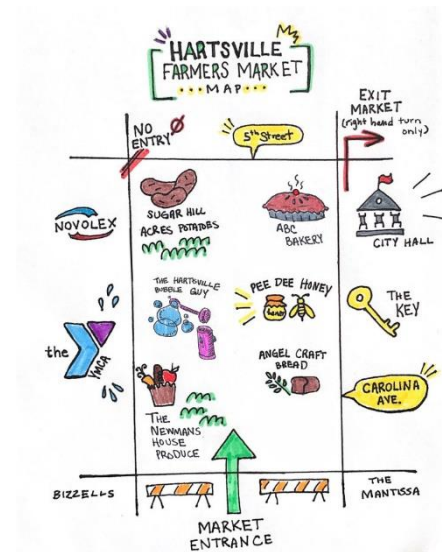 HARTSVILLE
FARMERS MARKET
MAP
EXIT
MARKET
(right hand turn
only)
NO
ENTRY
5th Street
NOVOLEX
SUGAR HILL
ACRES POTATOES
ABC
BAKERY
CITY HALL
THE HARTSVILLE
BUBBLE GUY
PEE DEE HONEY
honey
THE
KEY
the
YMCA
ANGEL CRAFT
BREAD
CAROLINA
AVE.
THE
NEWMANS
HOUSE
PRODUCE
BIZZELLS
THE
MANTISSA
MARKET
ENTRANCE